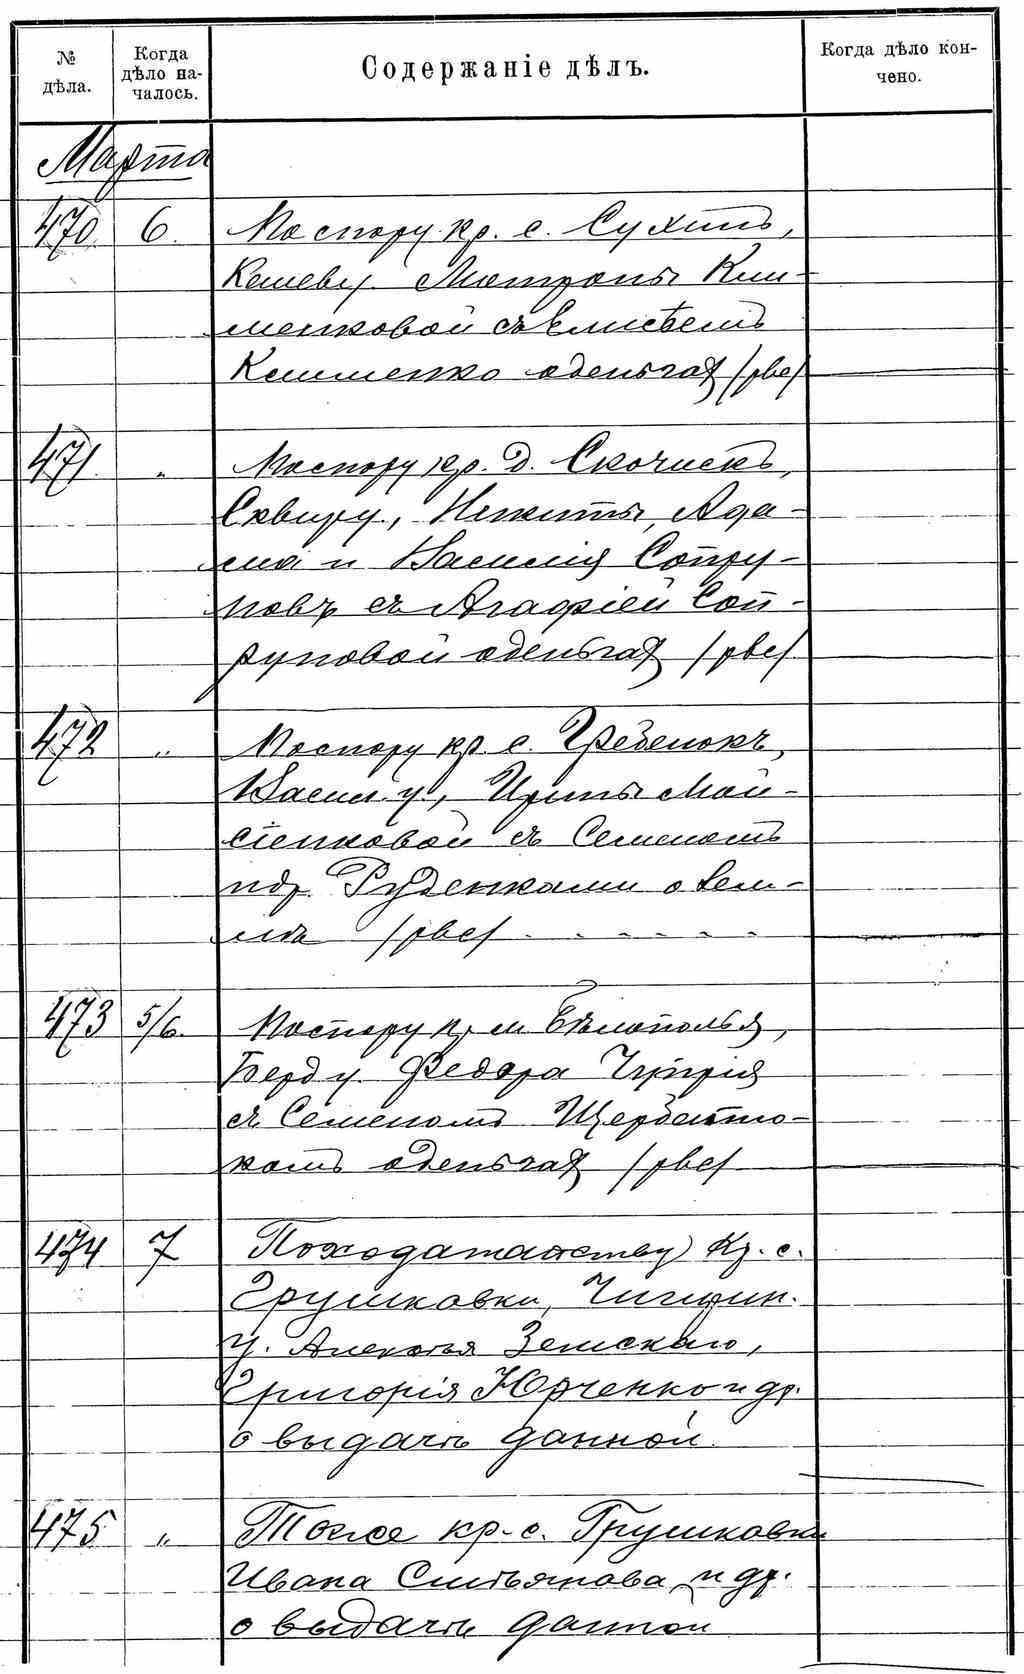 № дѣла.
Когда дѣло началось.
Содержаніе дѣлъ.
Когда дѣло кончено.
Марта
470 6. По спору кр. с. Сухинъ,
Каневу. Матроны Кли-
менковой съ Елисѣемъ
Клименко о деньгахъ
471. „ По спору кр. д. Скочискъ,
Сквиру., Никиты, Ада-
ма и Василія Сопру-
новъ съ Агафіей Соп-
руновой о деньгахъ
472 „ По спору кр. с. Гребенокъ,
Васил. у., Ирины Мой-
сіенковой съ Семеномъ
и др. Руденками о зем-
лѣ
473 5/6. По спору кр. м. Бѣлополья,
Берд. у. Федора Чуприя
съ Семеномъ Щербатю-
комъ о деньгахъ
474 7 По ходатайству кр. с.
Грушковки, Чигирин.
у. Алексѣя Земскаго,
Григорія Юрченко и др.
о выдачѣ данной.
475 „ Тоже кр. с. Грушковки
Ивана Ситьянова и др.
о выдачѣ данной